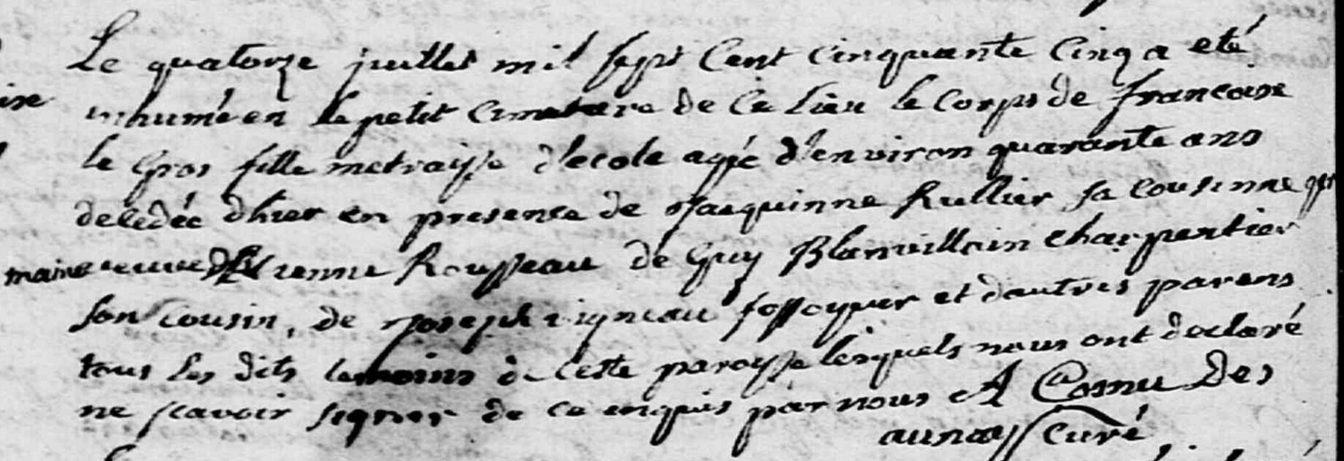 Le quatorze juillet mil sept Cent cinquante Cinq a eté
inhumé en le petit Cimetiere de Ce Lieu le Corps de francoise
le Gros fille metraisse d'ecole agée d'environ quarante ans
decedée d'hier en presence de Jacquinne Rullier sa Cousinne ger
maine veuve d'Etienne Rousseau de Guy Blanvillain charpentier
son Cousin, de Joseph vigneau fossoyeur et d'autres parens
tous Les dits temoins de Cette paroysse lesquels nous ont declaré
ne scavoir signer de ce enquis par nous A Cornu Des
aunays Curé